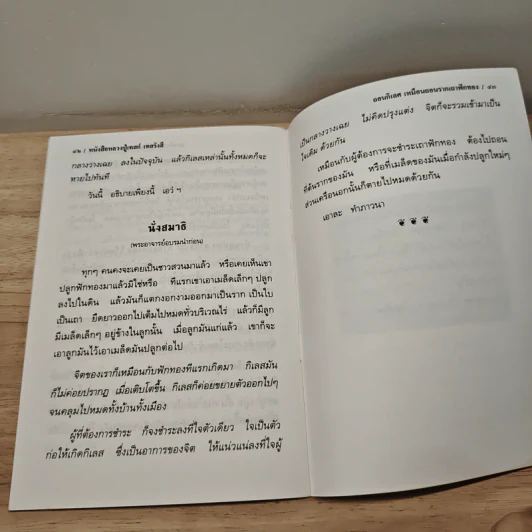 ๔๒ / หนังสือหลวงปู่เทสก์ เทสรังสี
กลางวางเฉย ลงในปัจจุบัน แล้วกิเลสเหล่านั้นทั้งหมดก็จะ
หายไปทันที
วันนี้ อธิบายเพียงนี้ เอวํ ฯ
นั่งสมาธิ
(พระอาจารย์อบรมนำก่อน)
ทุกๆ คนคงจะเคยเป็นชาวสวนมาแล้ว หรือเคยเห็นเขา
ปลูกฟักทองมาแล้วมิใช่หรือ ทีแรกเขาเอาเมล็ดเล็กๆ ปลูก
ลงไปในดิน แล้วมันก็แตกงอกงามออกมาเป็นราก เป็นใบ
เป็นเถา ยืดยาวออกไปเต็มไปหมดทั่วบริเวณไร่ แล้วก็มีลูก
มีเมล็ดเล็กๆ อยู่ข้างในลูกนั้น เมื่อลูกมันแก่แล้ว เขาก็จะ
เอาลูกมันไว้เอาเมล็ดมันปลูกต่อไป
จิตของเราก็เหมือนกับฟักทองทีแรกเกิดมา กิเลสมัน
ก็ไม่ค่อยปรากฏ เมื่อเติบโตขึ้น กิเลสก็ค่อยขยายตัวออกไปๆ
จนคลุมไปหมดทั้งบ้านทั้งเมือง
ผู้ที่ต้องการชำระ ก็จงชำระลงที่ใจตัวเดียว ใจเป็นตัว
ก่อให้เกิดกิเลส ซึ่งเป็นอาการของจิต ให้แน่วแน่ลงที่ใจผู้
ถอนกิเลส เหมือนถอนรากเถาฟักทอง / ๔๓
เป็นกลางวางเฉย ไม่คิดปรุงแต่ง จิตก็จะรวมเข้ามาเป็น
ใจเดิม ด้วยกัน
เหมือนกับผู้ต้องการจะชำระเถาฟักทอง ต้องไปถอน
ที่ต้นรากของมัน หรือที่เมล็ดของมันเมื่อกำลังปลูกใหม่ๆ
ส่วนเครือนอกนั้นก็ตายไปหมดด้วยกัน
เอาละ ทำภาวนา